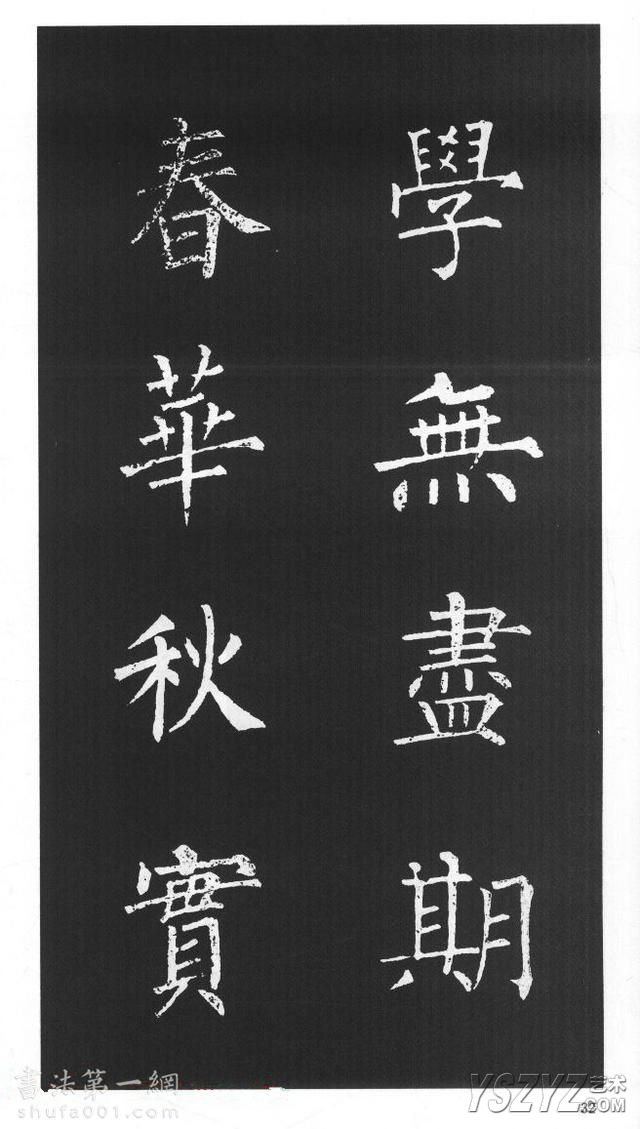 學無盡期
春華秋實
書法第一網
shufa001.com
YSZYZ艺术
.COM
32